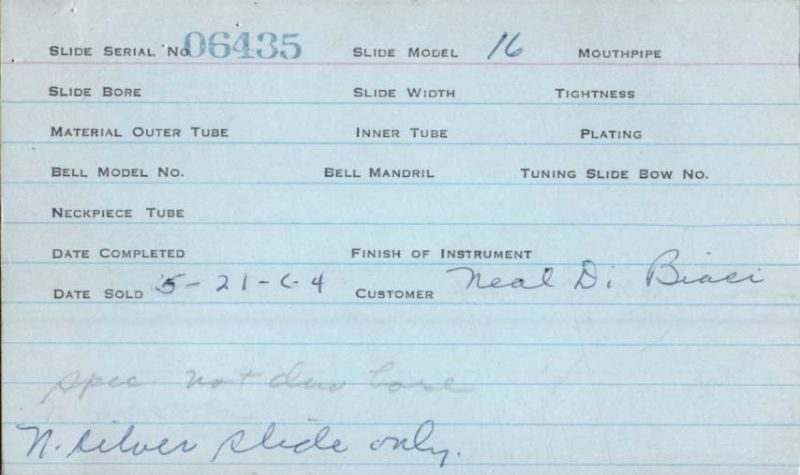 SLIDE SERIAL NO. 06435 SLIDE MODEL 16 MOUTHPIPE
SLIDE BORE SLIDE WIDTH TIGHTNESS
MATERIAL OUTER TUBE INNER TUBE PLATING
BELL MODEL NO. BELL MANDRIL TUNING SLIDE BOW NO.
NECKPIECE TUBE
DATE COMPLETED FINISH OF INSTRUMENT
DATE SOLD 5-21-64 CUSTOMER Neal Di Biaci
spec not duo bore
N. silver slide only.